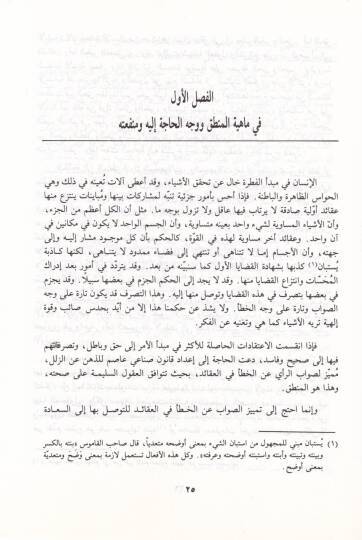 الفصل الأول
في ماهية المنطق ووجه الحاجة إليه ومنفعته
الإنسان في مبدأ الفطرة خال عن تحقق الأشياء، وقد أعطى آلات تُعينه في ذلك وهي
الحواس الظاهرة والباطنة. فإذا أحس بأمور جزئية تنبّه لمشاركات بينها ومُباينات ينتزع منها
عقائد أولية صادقة لا يرتاب فيها عاقل ولا تزول بوجه ما. مثل أن الكل أعظم من الجزء،
وأنّ الأشياء المساوية لشيء واحد بعينه متساوية، وأن الجسم الواحد لا يكون في مكانين في
آن واحد. وعقائد أخر مساوية لهذه في القوّة، كالحكم بأن كل موجود مشار إليه وإلى
جهته، وأن الأجسام إما لا تتناهى أو تنتهي إلى فضاء ممدود لا يتناهى، لكنها كاذبة
يُستبان(١) كذبها بشهادة القضايا الأول كما سنبيّنه من بعد. وقد يتردّد في أمور بعد إدراك
المُحَسّات وانتزاع القضايا منها. وقد لا يجد إلى الحكم الجزم في بعضها سبيلا. وقد يجزم
في بعضها بتصرف في هذه القضايا وتوصل منها إليه. وهذا التصرف قد يكون تارة على وجه
الصواب وتارة على وجه الخطأ. ولا يشذ عن حكمنا هذا إلا من أيّد بحدس صائب وقوة
إلهية تريه الأشياء كما هي وتغنيه عن الفكر.
فإذا انقسمت الاعتقادات الحاصلة للأكثر في مبدأ الأمر إلى حق وباطل، وتصرفاتهم
فيها إلى صحيح وفاسد، دعت الحاجة إلى إعداد قانون صناعي عاصم للذهن عن الزلل،
مُميّز لصواب الرأي عن الخطأ في العقائد، بحيث تتوافق العقول السليمة على صحته،
وهذا هو المنطق.
وإنما احتج إلى تمييز الصواب عن الخطأ في العقائد للتوصل بها إلى السعادة
(١) يُستبان مبني للمجهول من استبان الشيء بمعنى أوضحه متعدياً، قال صاحب القاموس «بنته بالكسر
وبينته وتبينته وأبنته واستبنته أوضحته وعرفته». وكل هذه الأفعال تستعمل لازمة بمعنى وَضَحَ ومتعديّة
بمعنى أوضح.
٢٥